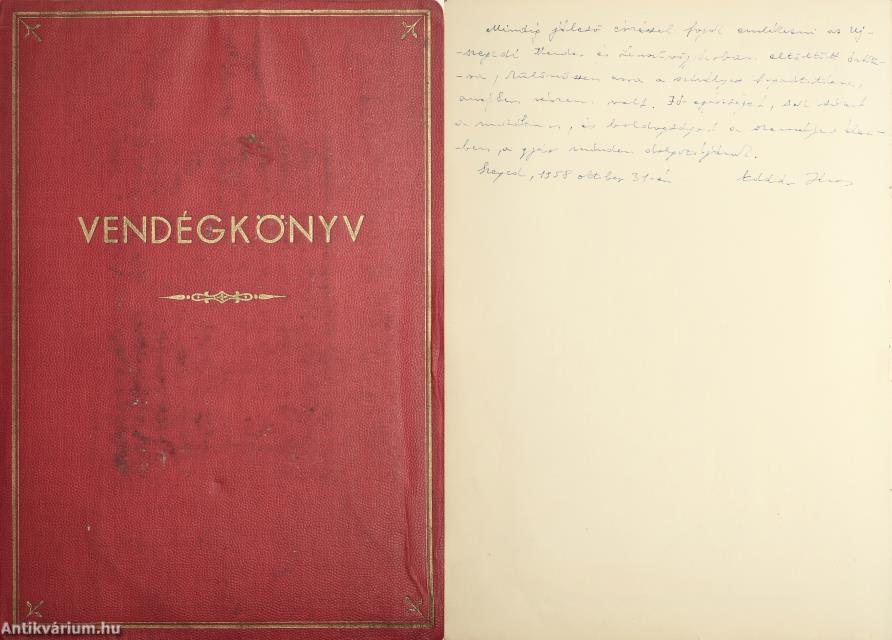 VENDÉGKÖNYV
Mindig jóleső érzéssel fogok emlékezni az Új-
-szegedi Kender és Lenszövőgyárban eltöltött órák-
-ra, különösen arra a szívélyes fogadtatásra,
amelyben részem volt. Jó egészséget, sok sikert
a munkában, és boldogságot a személyes élet-
ben, a gyár minden dolgozójának.
Szeged, 1958 október 31-én Kádár János
Antikvárium.hu